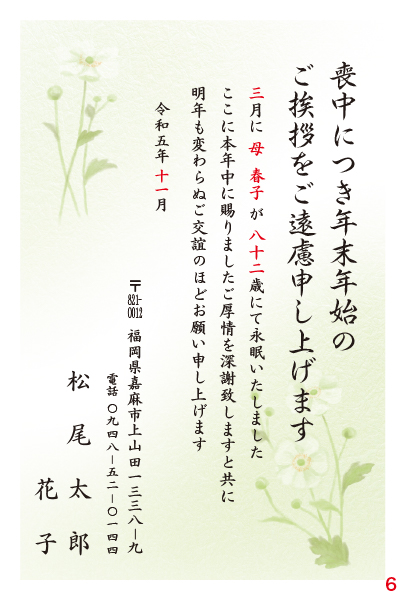 喪中につき年末年始の
ご挨拶をご遠慮申し上げます
三月に 母 春子 が 八十二歳にて永眠いたしました
ここに本年中に賜りましたご厚情を深謝致しますと共に
明年も変わらぬご交誼のほどお願い申し上げます
令和五年 十一月
〒821-0012 福岡県嘉麻市上山田一三三八ー九
電話 〇九四八ー五二ー〇一四四
松尾 太郎
花子
6